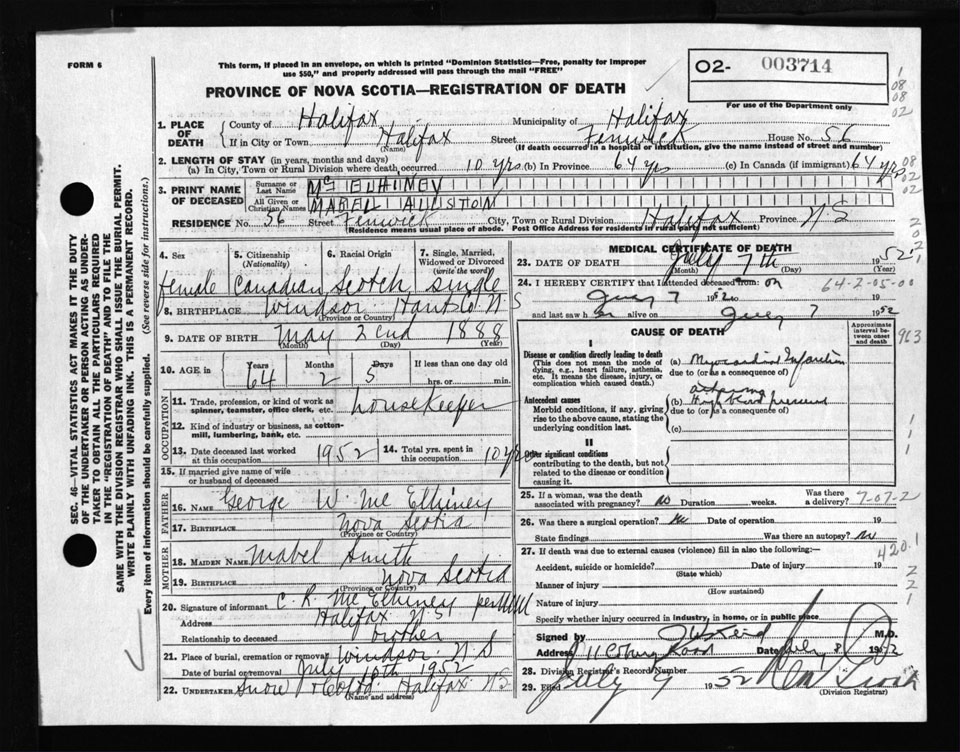 FORM 6
This form, if placed in an envelope, on which is printed "Dominion Statistics—Free, penalty for improper
use $50," and properly addressed will pass through the mail "FREE"
O2- 003714
For use of the Department only
PROVINCE OF NOVA SCOTIA—REGISTRATION OF DEATH
1. PLACE OF DEATH
County of Halifax Municipality of Halifax
If in City or Town Halifax Street Fenwick House No. 56
(Name) (If death occurred in a hospital or institution, give the name instead of street and number)
2. LENGTH OF STAY (in years, months and days)
(a) In City, Town or Rural Division where death occurred 10 yrs (b) In Province 64 yrs (c) In Canada (if immigrant) 64 yrs
3. PRINT NAME OF DECEASED
Surname or Last Name Mc ELHINEY
All Given or Christian Names MABEL ALLISTON
RESIDENCE No. 56 Street Fenwick City, Town or Rural Division Halifax Province N S
(Residence means usual place of abode. Post Office Address for residents in rural parts not sufficient)
4. Sex 5. Citizenship (Nationality) 6. Racial Origin 7. Single, Married, Widowed or Divorced (write the word)
female Canadian Scotch single
8. BIRTHPLACE Windsor Hants Co N S
(Province or Country)
9. DATE OF BIRTH May 2nd 1888
(Month) (Day) (Year)
10. AGE in Years Months Days If less than one day
64 2 5 hrs. or min.
OCCUPATION
11. Trade, profession, or kind of work as spinner, teamster, office clerk, etc. housekeeper
12. Kind of industry or business, as cotton-mill, lumbering, bank, etc.
13. Date deceased last worked at this occupation 1952 14. Total yrs. spent in this occupation 10 yrs
15. If married give name of wife or husband of deceased
FATHER
16. NAME George W Mc Elhiney
17. BIRTHPLACE Nova Scotia
(Province or Country)
MOTHER
18. MAIDEN NAME Mabel Smith
19. BIRTHPLACE Nova Scotia
(Province or Country)
20. Signature of informant C. R. Mc Elhiney per
Address Halifax N S
Relationship to deceased brother
21. Place of burial, cremation or removal Windsor N S
Date of burial or removal July 10th 1952
22. UNDERTAKER Snow & Co Ltd. Halifax N S
(Name and address)
MEDICAL CERTIFICATE OF DEATH
23. DATE OF DEATH July 7th 1952
(Month) (Day) (Year)
24. I HEREBY CERTIFY that I attended deceased from: on 64-2-05-00
July 7 1952 to
and last saw her alive on July 7 1952
CAUSE OF DEATH
Approximate interval between onset and death
963
I
Disease or condition directly leading to death
(This does not mean the mode of dying, e.g., heart failure, asthenia, etc. It means the disease, injury, or complication which caused death.)
(a) Myocardial Infarction
due to (or as a consequence of)
Antecedent causes
Morbid conditions, if any, giving rise to the above cause, stating the underlying condition last.
(b) High blood pressure
due to (or as a consequence of)
(c)
II
Other significant conditions
contributing to the death, but not related to the disease or condition causing it.
25. If a woman, was the death associated with pregnancy? no Duration weeks. Was there a delivery? 7-07-2
26. Was there a surgical operation? no Date of operation 19
State findings Was there an autopsy? no
27. If death was due to external causes (violence) fill in also the following:—
420.1
Accident, suicide or homicide? Date of injury 19
(State which)
Manner of injury
(How sustained)
Nature of injury
Specify whether injury occurred in industry, in home, or in public place
Signed by M.D.
Address Road Date July 8 1952
28. Division Registrar's Record Number
29. Filed July 9 1952
(Division Registrar)
SEC. 46—VITAL STATISTICS ACT MAKES IT THE DUTY
OF THE UNDERTAKER OR PERSON ACTING AS UNDER-
TAKER TO OBTAIN ALL THE PARTICULARS REQUIRED
IN THE "REGISTRATION OF DEATH" AND TO FILE THE
SAME WITH THE DIVISION REGISTRAR WHO SHALL ISSUE THE BURIAL PERMIT.
WRITE PLAINLY WITH UNFADING INK. THIS IS A PERMANENT RECORD.
Every item of information should be carefully supplied. (See reverse side for instructions.)